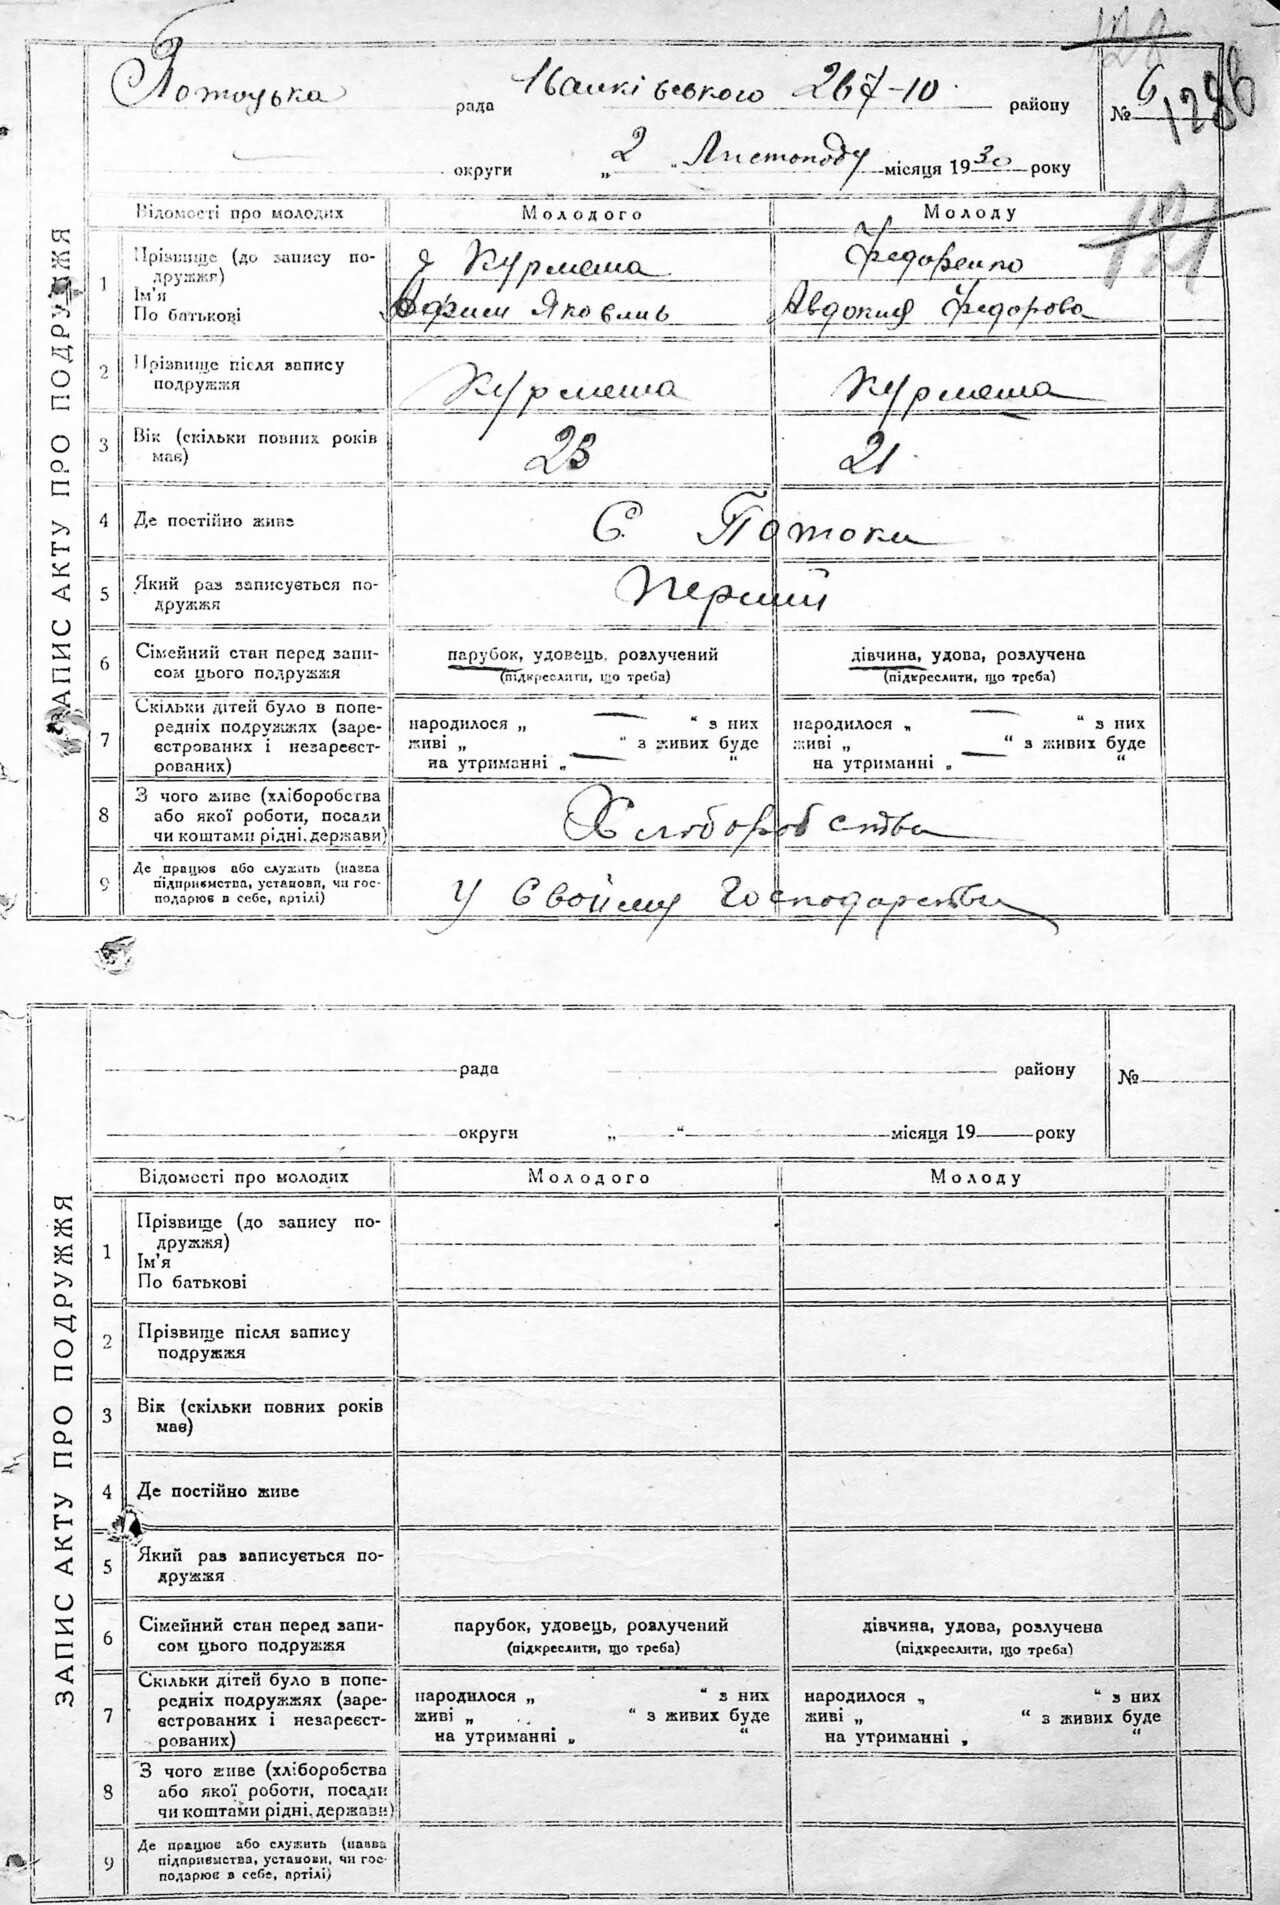 128
Потоцька рада Іванківського 267-10 районy № 6
1286
округи „2“ Листопаду місяця 1930 року
121
ЗАПИС АКТУ ПРО ПОДРУЖЖЯ
Відомості про молодих Молодого Молоду
1 Прізвище (до запису по- Курмеша Федоренко
дружжя)
Ім'я
По батькові Яковлив Авдокия Федорова
2 Прізвище після запису
подружжя Курмеша Курмеша
3 Вік (скільки повних років
має) 23 21
4 Де постійно живе С. Потоки
5 Який раз записується по-
дружжя Перший
6 Сімейний стан перед запи- парубок, удовець, розлучений дівчина, удова, розлучена
сом цього подружжя (підкреслити, що треба) (підкреслити, що треба)
7 Скільки дітей було в попе-
редніх подружжях (заре- народилося „ — “ з них народилося „ — “ з них
єстрованих і незареєст- живі „ — “ з живих буде живі „ — “ з живих буде
рованих) на утриманні „ “ на утриманні „ “
8 З чого живе (хліборобства
або якої роботи, посади Хлоборобства
чи коштами рідні, держави)
9 Де працює або служить (назва
підприємства, установи, чи гос- У Свойму Господарстви
подарює в себе, артілі)
рада районy №
округи „ “ місяця 19 року
ЗАПИС АКТУ ПРО ПОДРУЖЖЯ
Відомості про молодих Молодого Молоду
1 Прізвище (до запису по-
дружжя)
Ім'я
По батькові
2 Прізвище після запису
подружжя
3 Вік (скільки повних років
має)
4 Де постійно живе
5 Який раз записується по-
дружжя
6 Сімейний стан перед запи- парубок, удовець, розлучений дівчина, удова, розлучена
сом цього подружжя (підкреслити, що треба) (підкреслити, що треба)
7 Скільки дітей було в попе-
редніх подружжях (заре- народилося „ “ з них народилося „ “ з них
єстрованих і незареєст- живі „ “ з живих буде живі „ “ з живих буде
рованих) на утриманні „ “ на утриманні „ “
8 З чого живе (хліборобства
або якої роботи, посади
чи коштами рідні, держави)
9 Де працює або служить (назва
підприємства, установи, чи гос-
подарює в себе, артілі)